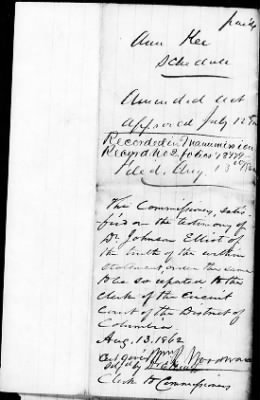 paid
Ann Kee
Schedule
Amended act
approved July 12th
Recorded in Transmission
Record No 2 folios
filed. Aug. 13
The Commissioners, satis-
fied on the testimony of
Dr Johnson Elliot of
the truth of the within
statement, order the same
to be so reported to the
clerk of the Circuit
Court of the District of
Columbia
Aug. 13. 1862
Wm R Woodward
Clerk to Commissioners